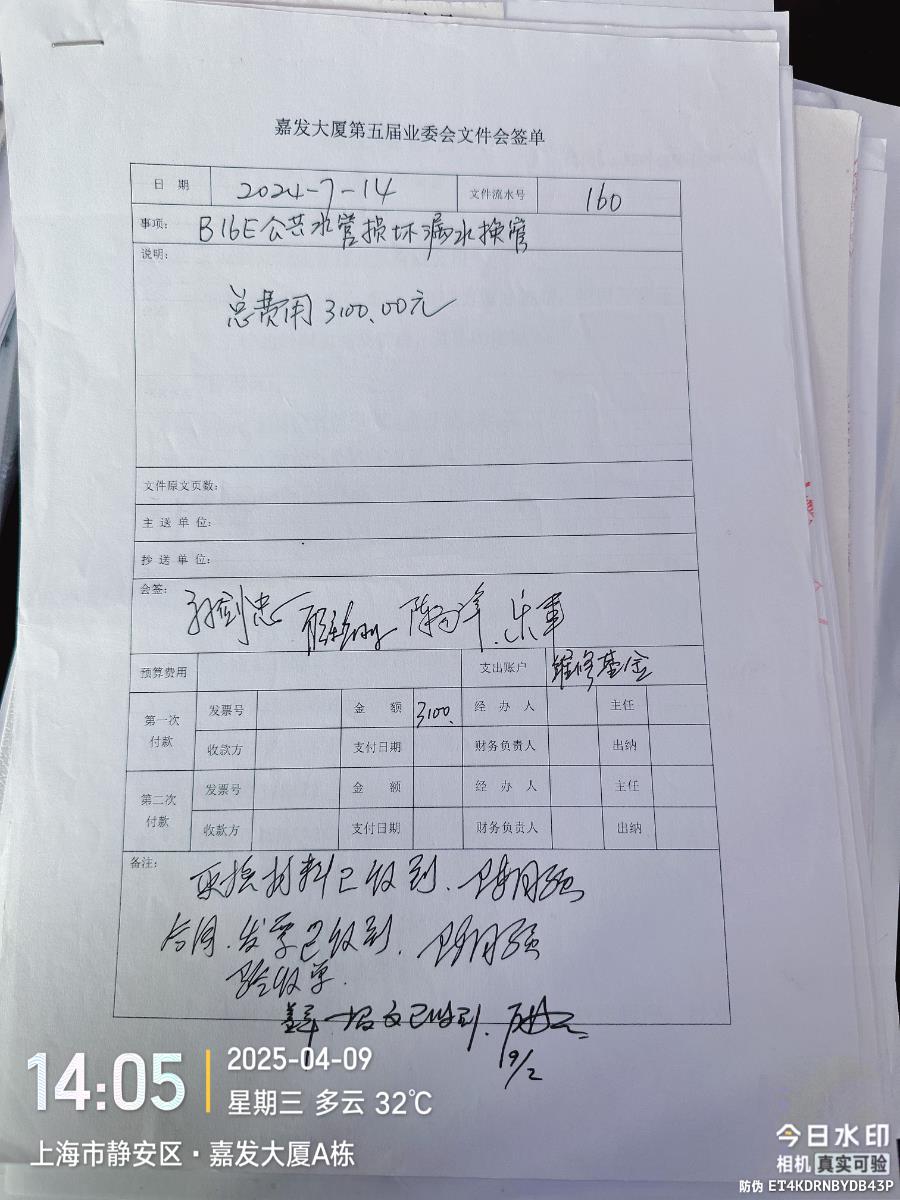 嘉发大厦第五届业委会文件会签单
日 期 2024-7-14 文件流水号 160
事项: B16E公共水管损坏漏水换管
说明:
总费用3100.00元
文件原文页数:
主 送 单 位:
抄 送 单 位:
会签:
预算费用 支出账户 维修基金
第一次付款 发票号 金 额 3100. 经 办 人 主任
收款方 支付日期 财务负责人 出纳
第二次付款 发票号 金 额 经 办 人 主任
收款方 支付日期 财务负责人 出纳
备注:
材料已收到.
合同.发票已收到.
验收单.
已收到.
19/2
14:05
2025-04-09
星期三 多云 32℃
上海市静安区·嘉发大厦A栋
今日水印
相机 真实可验
防伪 ET4KDRNBYDB43P